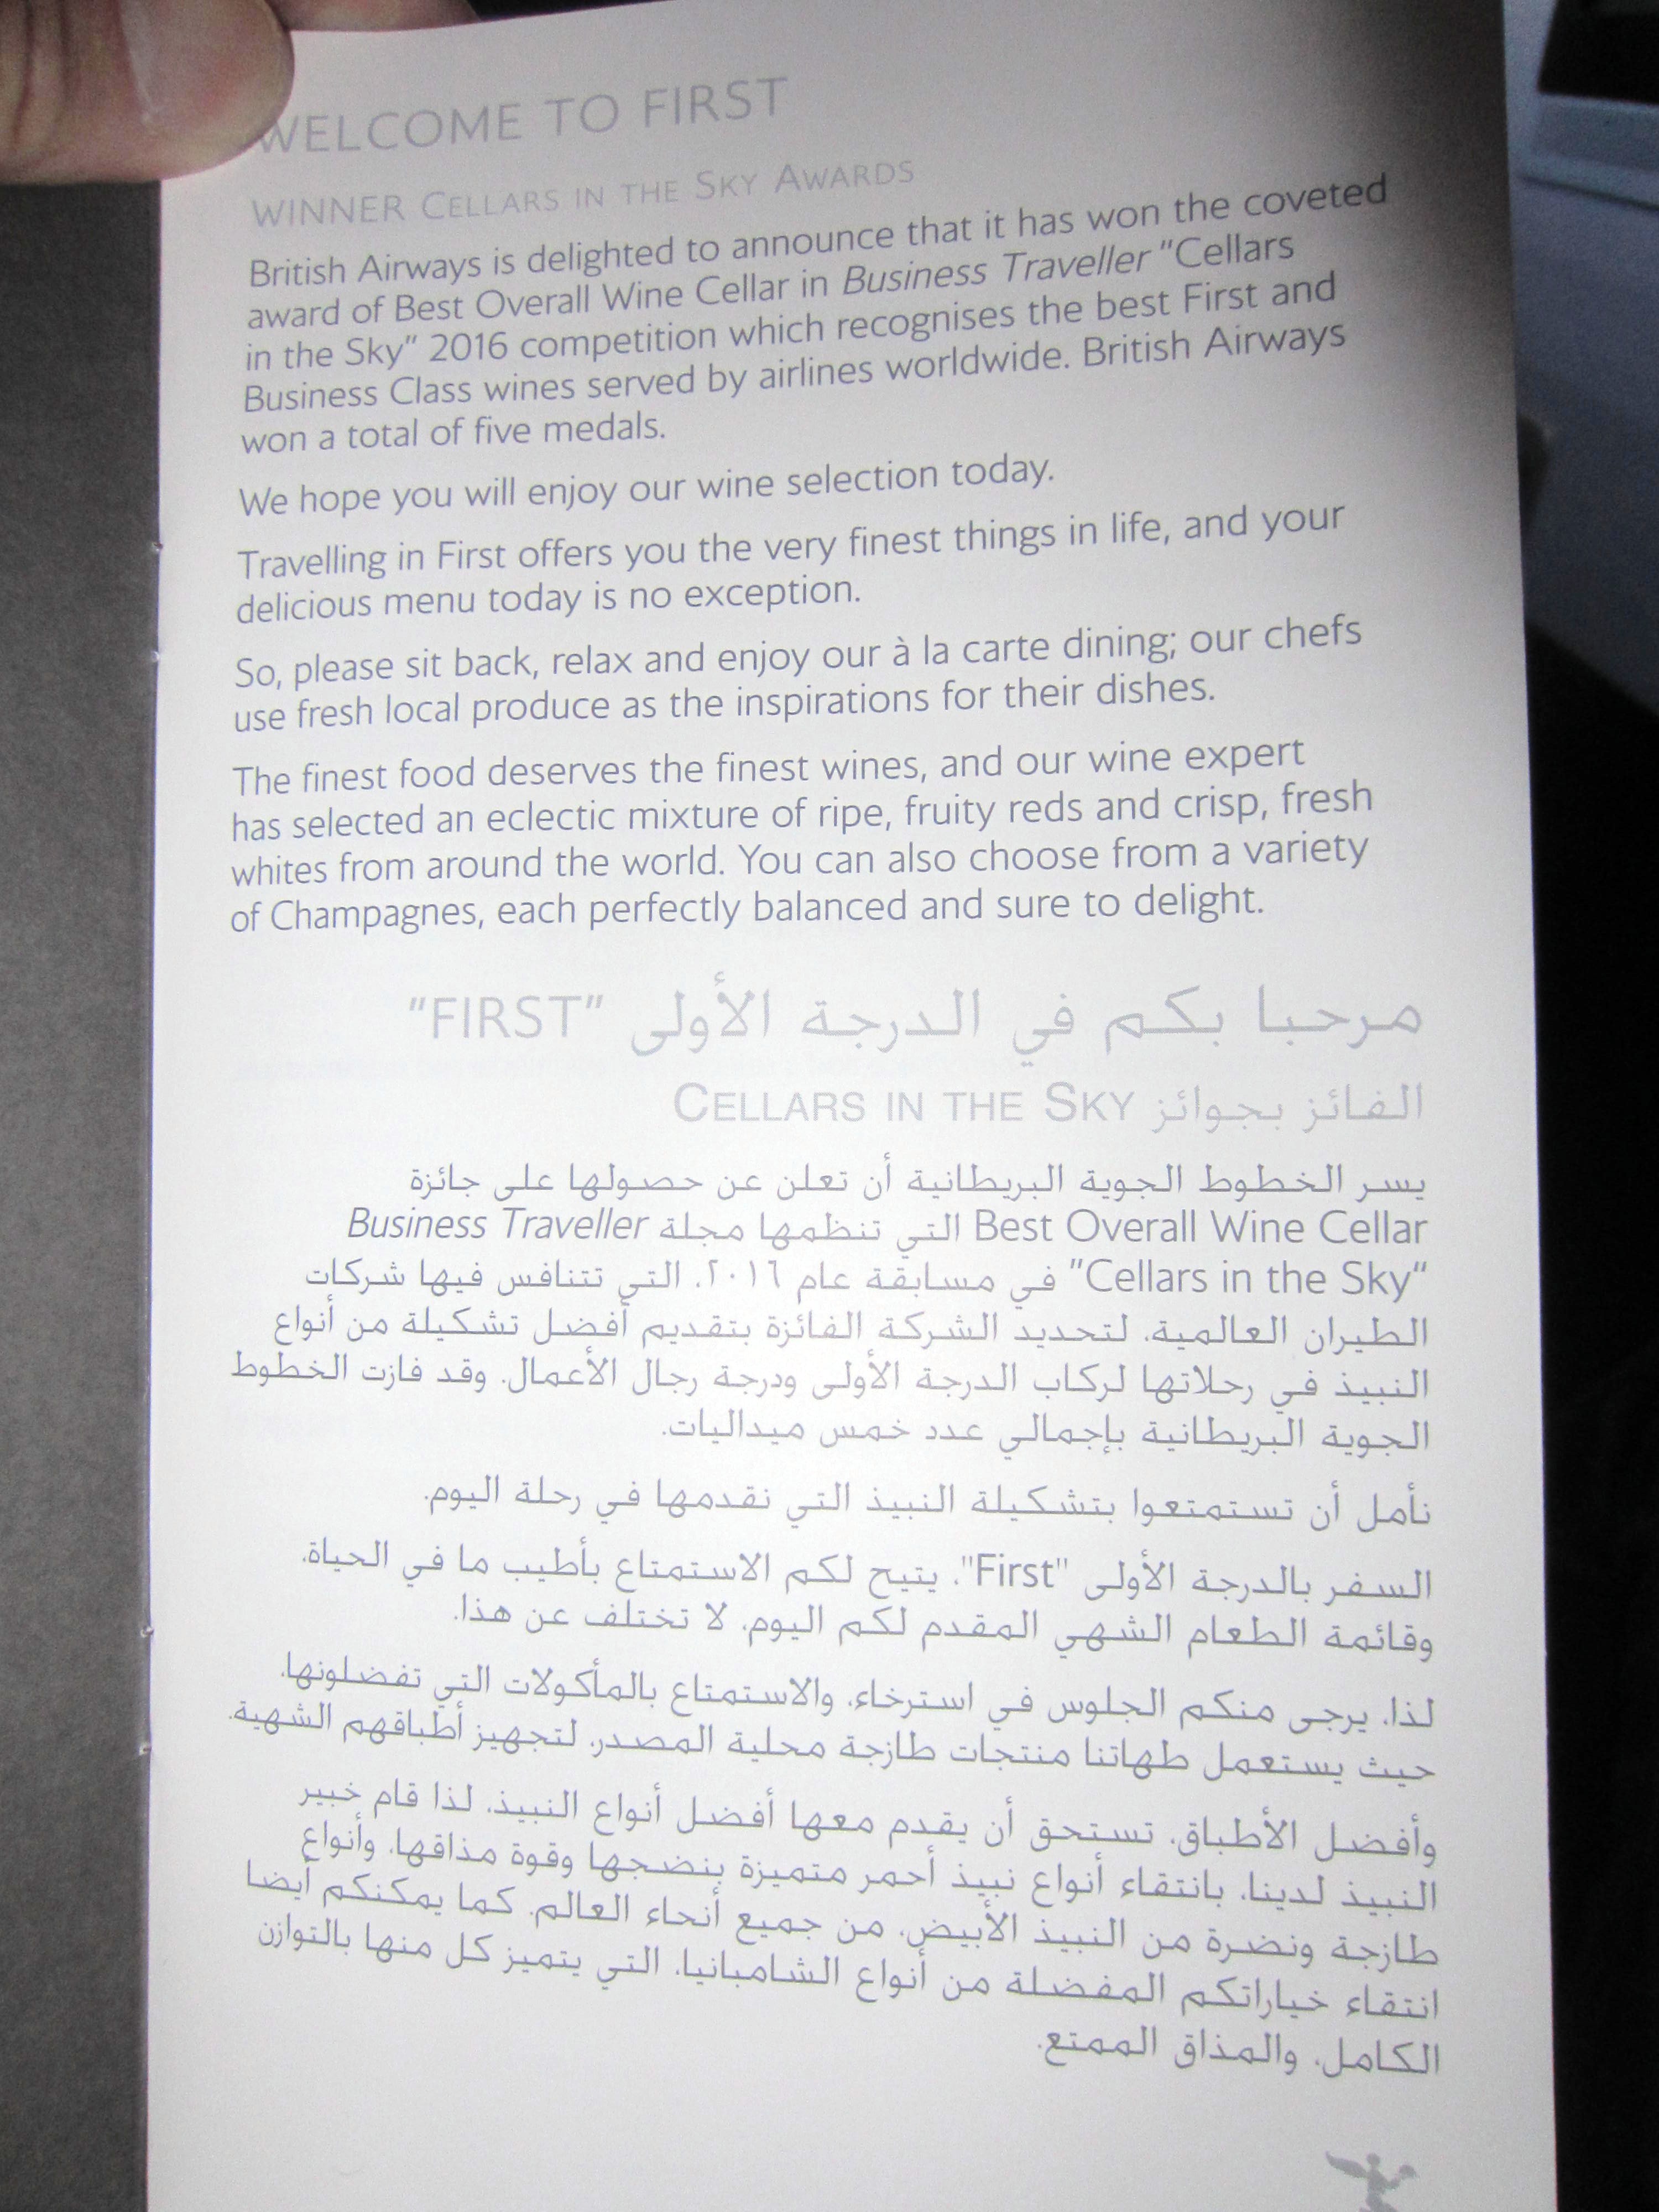 WELCOME TO FIRST
WINNER CELLARS IN THE SKY AWARDS
British Airways is delighted to announce that it has won the coveted
award of Best Overall Wine Cellar in Business Traveller "Cellars
in the Sky" 2016 competition which recognises the best First and
Business Class wines served by airlines worldwide. British Airways
won a total of five medals.
We hope you will enjoy our wine selection today.
Travelling in First offers you the very finest things in life, and your
delicious menu today is no exception.
So, please sit back, relax and enjoy our à la carte dining; our chefs
use fresh local produce as the inspirations for their dishes.
The finest food deserves the finest wines, and our wine expert
has selected an eclectic mixture of ripe, fruity reds and crisp, fresh
whites from around the world. You can also choose from a variety
of Champagnes, each perfectly balanced and sure to delight.
مرحبا بكم في الدرجة الأولى "FIRST"
الفائز بجوائز CELLARS IN THE SKY
يسر الخطوط الجوية البريطانية أن تعلن عن حصولها على جائزة
Best Overall Wine Cellar التي تنظمها مجلة Business Traveller
"Cellars in the Sky" في مسابقة عام ٢٠١٦، التي تتنافس فيها شركات
الطيران العالمية، لتحديد الشركة الفائزة بتقديم أفضل تشكيلة من أنواع
النبيذ في رحلاتها لركاب الدرجة الأولى ودرجة رجال الأعمال. وقد فازت الخطوط
الجوية البريطانية بإجمالي عدد خمس ميداليات.
نأمل أن تستمتعوا بتشكيلة النبيذ التي نقدمها في رحلة اليوم.
السفر بالدرجة الأولى "First"، يتيح لكم الاستمتاع بأطيب ما في الحياة،
وقائمة الطعام الشهي المقدم لكم اليوم، لا تختلف عن هذا.
لذا، يرجى منكم الجلوس في استرخاء، والاستمتاع بالمأكولات التي تفضلونها،
حيث يستعمل طهاتنا منتجات طازجة محلية المصدر، لتجهيز أطباقهم الشهية.
وأفضل الأطباق، تستحق أن يقدم معها أفضل أنواع النبيذ، لذا قام خبير
النبيذ لدينا، بانتقاء أنواع نبيذ أحمر متميزة بنضجها وقوة مذاقها، وأنواع
طازجة ونضرة من النبيذ الأبيض، من جميع أنحاء العالم. كما يمكنكم أيضا
انتقاء خياراتكم المفضلة من أنواع الشامبانيا، التي يتميز كل منها بالتوازن
الكامل، والمذاق الممتع.